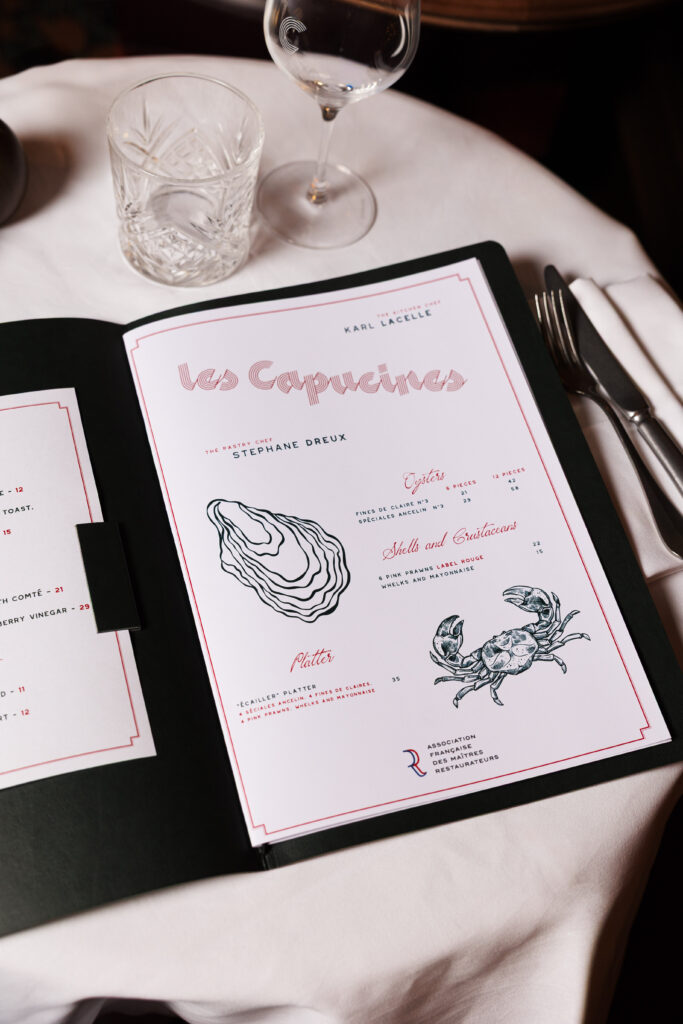 C
E - 12
TOAST,
15
TH COMTÉ - 21
BERRY VINEGAR - 29
D - 11
RT - 12
THE KITCHEN CHEF
KARL LACELLE
les Capucines
THE PASTRY CHEF
STEPHANE DREUX
Oysters 6 PIECES 12 PIECES
FINES DE CLAIRE N°3 21 42
SPÉCIALES ANCELIN N°3 29 58
Shells and Crustaceans
6 PINK PRAWNS LABEL ROUGE 22
WHELKS AND MAYONNAISE 15
Platter
"ÉCAILLER" PLATTER 35
4 SÉCIALES ANCELIN, 4 FINES DE CLAIRES,
4 PINK PRAWNS, WHELKS AND MAYONNAISE
R
ASSOCIATION
FRANÇAISE
DES MAÎTRES
RESTAURATEURS